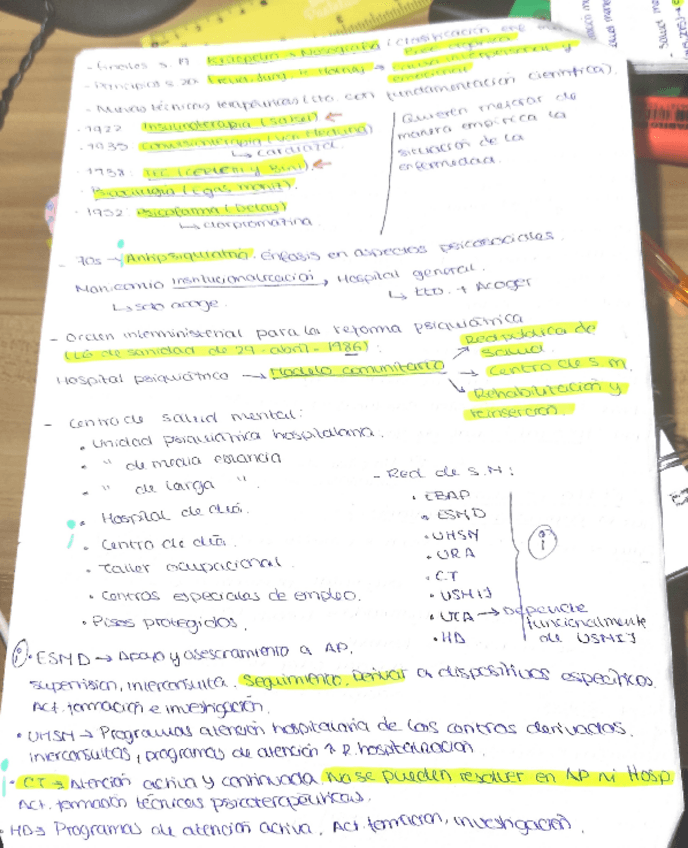 - Finales s. 19 Kraepelin → Nosografía (clasificación en
- Principios s. 20 Freud, Jung
- Nuevas técnicas terapéuticas (sta con fundamentación científica).
· 1922 Insulinoterapia (Sakel) ←
· 1935 Convulsioterapia (Von Meduna)
↳ cardiazol.
· 1938: TEC (Cerletti y Bini). ←
· Psicocirugía (Egas Moniz).
· 1952: Psicofarma (Delay)
↳ clorpromazina.
Quieren mejorar de
manera empírica la
situación de la
enfermedad.
- 70s → Antipsiquiatría. Énfasis en aspectos psicosociales.
Manicomio institucionalización → Hospital general.
↳ solo acoge.
↳ tto. + Acoger
- Orden interministerial para la reforma psiquiátrica
(LG de sanidad de 29 abril - 1986):
Hospital psiquiátrico → Modelo comunitario
Red pública de
salud.
→ Centro de S.M.
↳ Rehabilitación y
reinserción.
- Centro de salud mental:
· Unidad psiquiátrica hospitalaria.
· " de media estancia
· " de larga ".
· Hospital de día.
· Centro de día.
· Taller ocupacional.
· Centros especiales de empleo.
· Pisos protegidos.
- Red de S.M:
· EBAP
· ESMD
· UHSM
· URA
· CT
· USMIJ
· UCA → Depende
funcionalmente
de USMIJ
· HD
· ESMD → Apoyo y asesoramiento a AP.
supervisión, interconsulta. Seguimiento. Derivar a dispositivos específicos.
Act. formación e investigación.
· UHSM → Programas atención hospitalaria de los centros derivados.
interconsultas, programas de atención p. hospitalización.
· CT → Atención activa y continuada No se pueden resolver en AP ni Hosp.
Act. formación técnicas psicoterapéuticas.
· HD → Programas de atención activa. Act. formación, investigación.